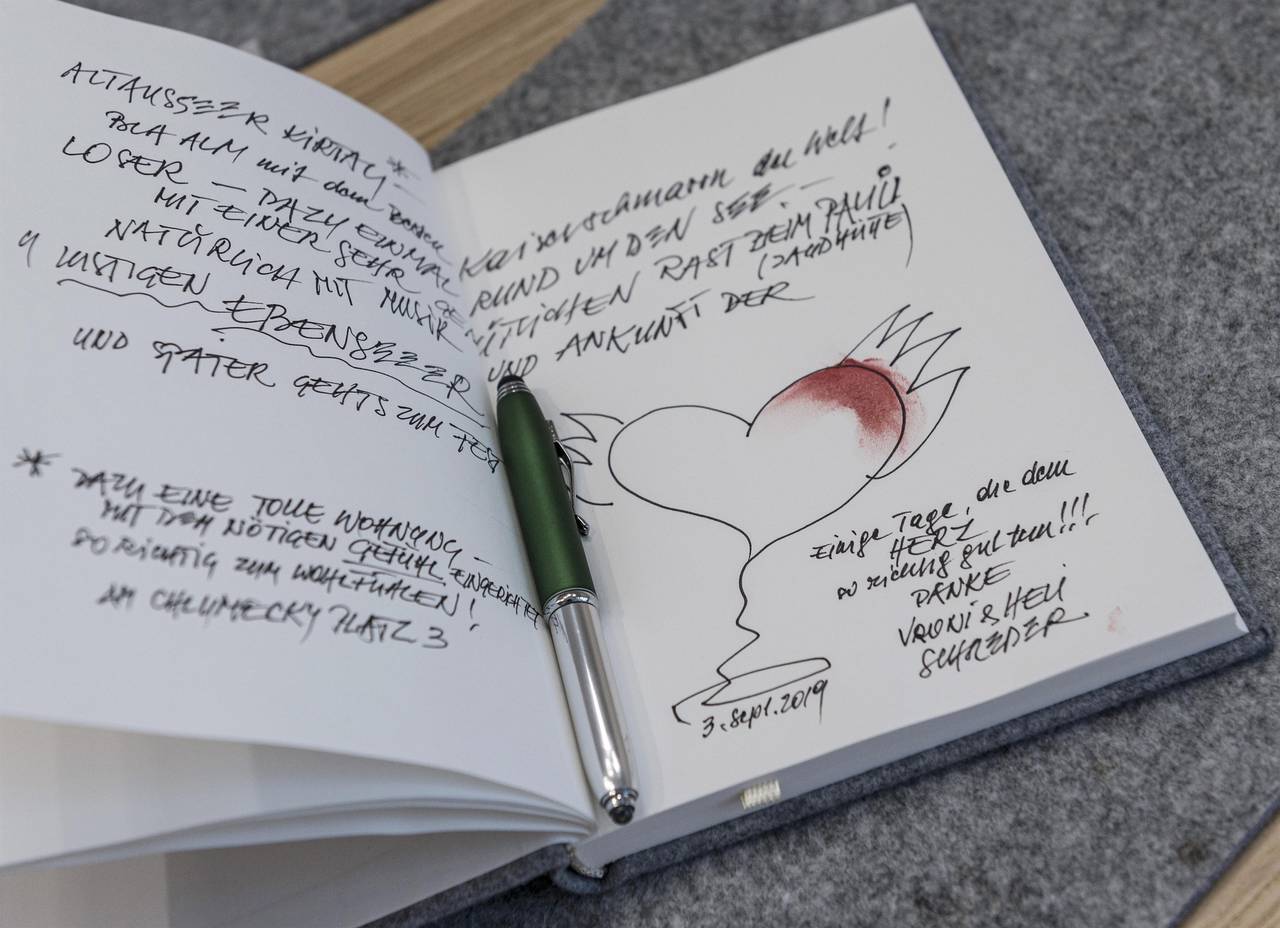 ALTAUSSEER KIRTAG *
BLA ALM mit dem
LOSER — DAZU EINMAL
MIT EINER SEHR
NATÜRLICH MIT MUSIK
LUSTIGEN EBENSEEER
UND SPÄTER GEHTS ZUM
* DAZU EINE TOLLE WOHNUNG —
MIT DEM NÖTIGEN GEFÜHL EINGERICHTET
SO RICHTIG ZUM WOHLFÜHLEN!
AM CHLUMECKY PLATZ 3
Kaiserschmarrn der Welt!
RUND UM DEN SEE —
RAST BEIM PAULI
(JAGDHÜTTE)
UND ANKUNFT DER
Einige Tage, die dem
HERZ
so richtig gut tun!!!
DANKE
VRONI & HELI
SCHREDER
3. Sept. 2019